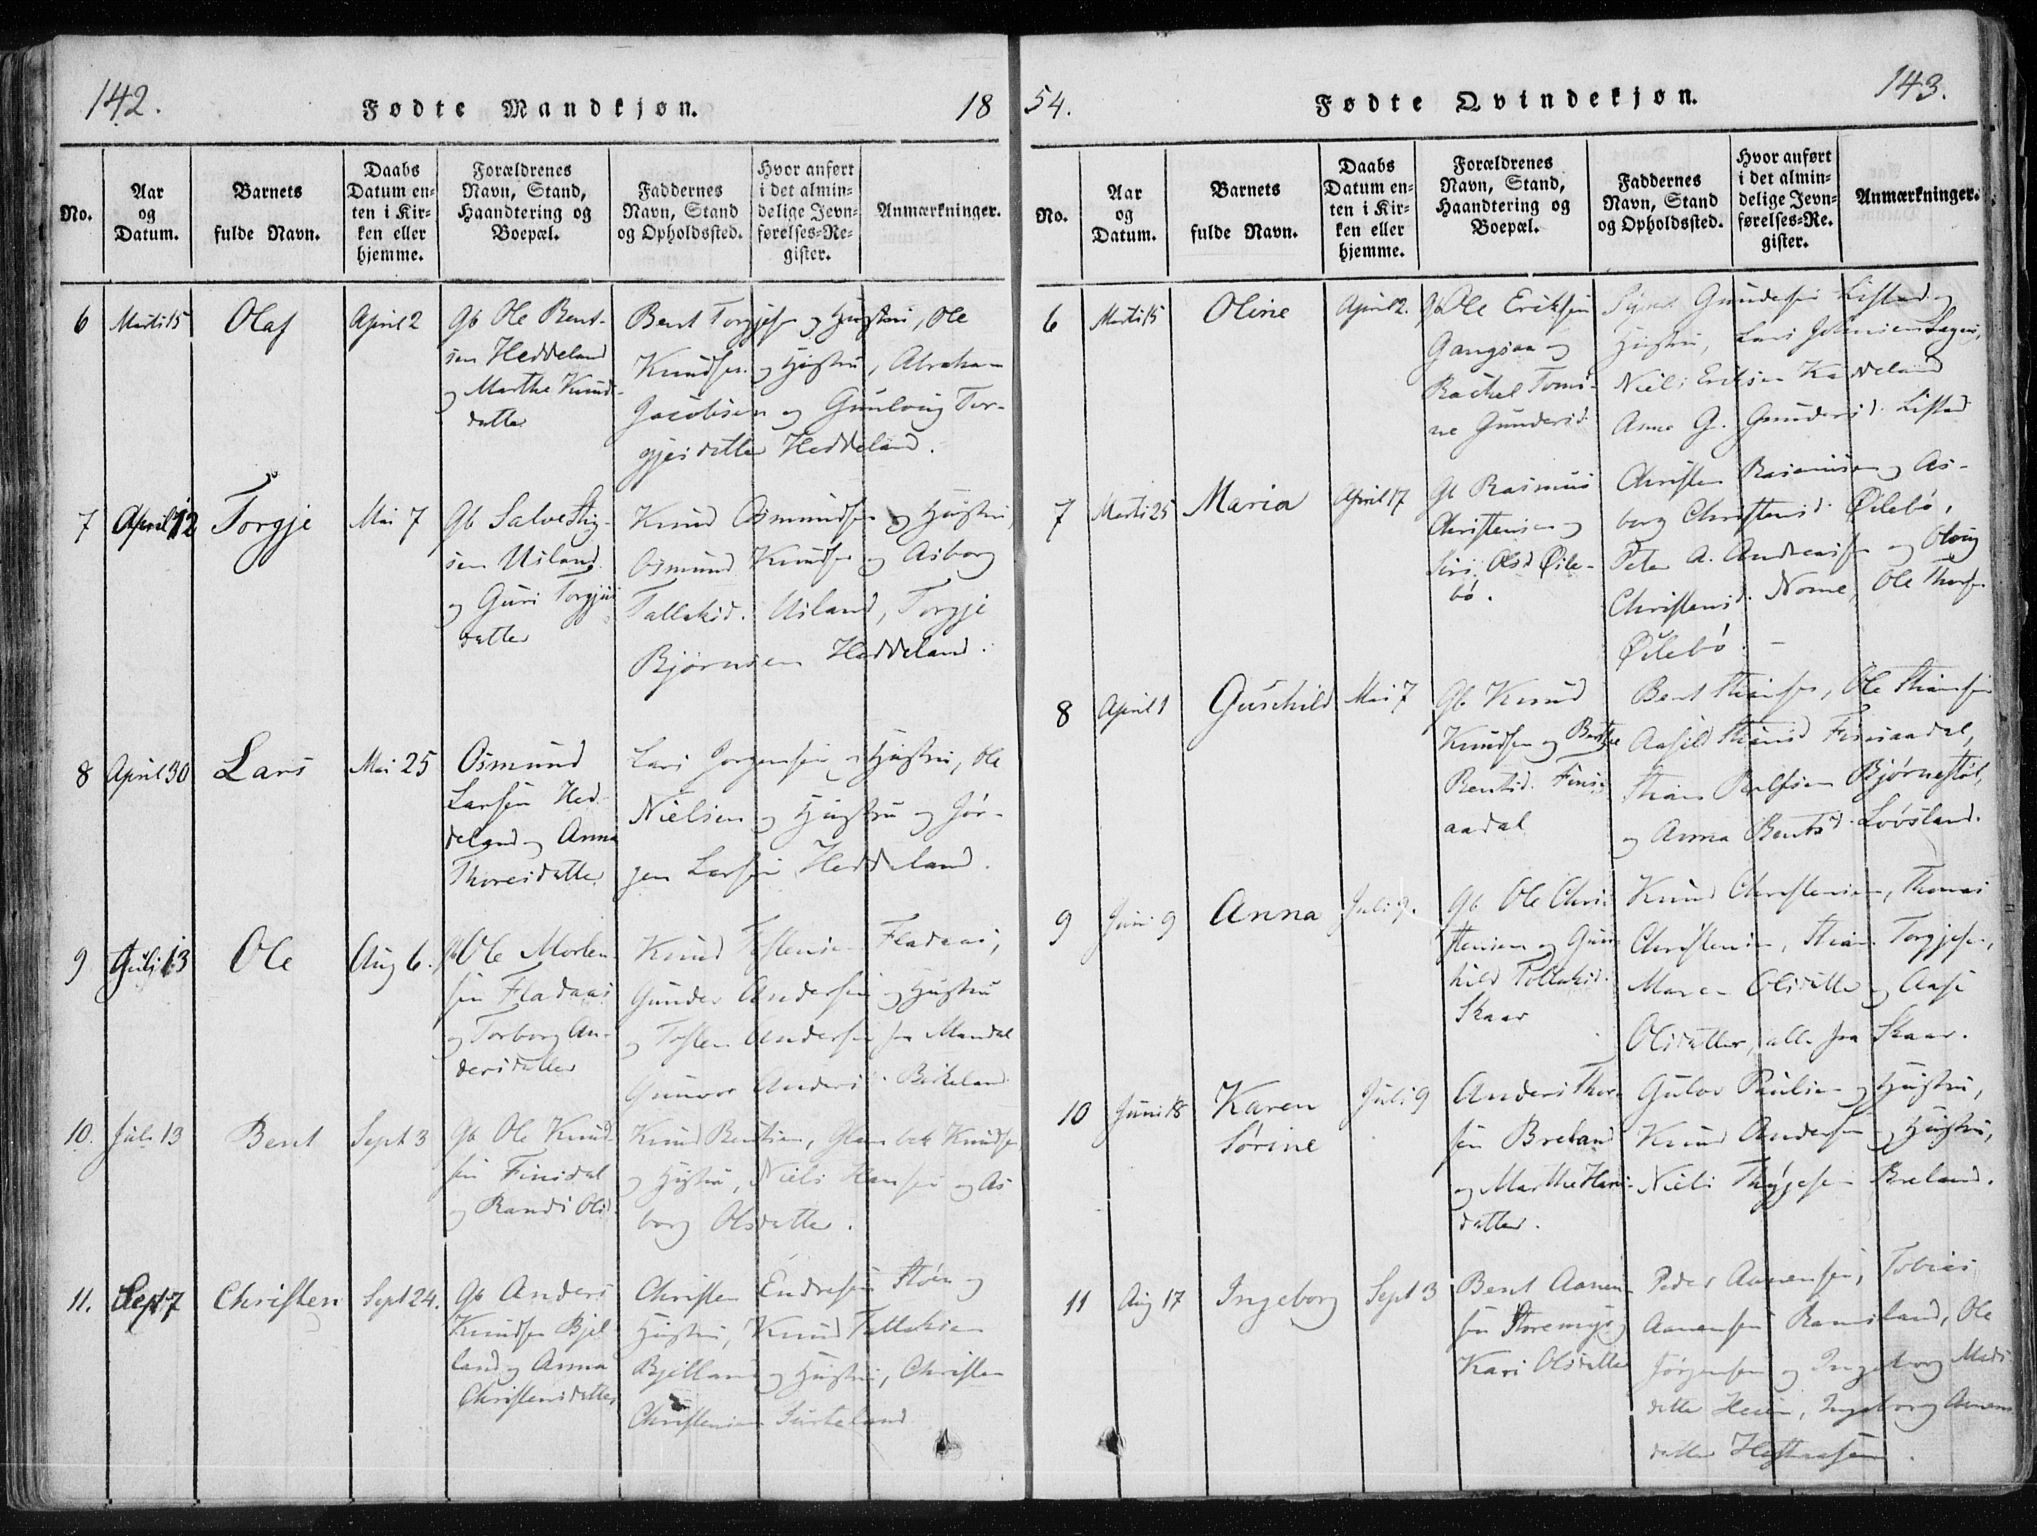 142.
Fødte Mandkjøn.
18
No.
Aar
og
Datum.
Barnets
fulde Navn.
Daabs
Datum en-
ten i Kir-
ken eller
hjemme.
Forældrenes
Navn, Stand,
Haandtering og
Boepæl.
Faddernes
Navn, Stand
og Opholdssted.
Hvor anført
i det almin-
delige Jevn-
førelses-Re-
gister.
Anmærkninger.
6
Marti 15
Olaf
April 2
Gb Ole Bent-
sen Heddeland
og Marthe Knuds-
datter
Bent Torgjesen og Hustru, Ole
Knudsen og Hustru, Abraham
Jacobsen og Gunloug Tor-
gjesdatter Heddeland.
7
April 12
Torgje
Mai 7
Gb Salve Stig-
sen Usland
og Guri Torgjus
datter
Knud Osmundsen og Hustru,
Osmund Knudsen og Asborg
Tallaksd. Usland, Torgje
Bjørnsen Heddeland.
8
April 30
Lars
Mai 25
Osmund
Larsen Hed-
deland og Anna
Thoresdatter
Lars Jørgensen og Hustru, Ole
Nielsen og Hustru og Jør-
gen Larsen Heddeland.
9
Juli 13
Ole
Aug 6.
Gb Ole Morten-
sen Fladaas
og Torborg An-
dersdatter
Knud Tostensen Fladaas,
Gunder Andersen og Hustru
og Tosten Andersen fra Mandal
Gunvor Andersd. Birkeland
10.
Juli 13
Bent
Sept 3
Gb Ole Knud-
sen Finsdal
og Randi Olsd.
Knud Bentsen, Glambek Knudsen
og Hustru, Niels Hansen og As
borg Olsdatter.
11.
Sept 7
Christen
Sept 24.
Gb Anders
Knudsen Bjel
land og Anna
Christensdatter
Christen Endresen Støen og
Hustru, Knud Tallaksen
Bjelland og Hustru, Christen
Christensen
54.
Fødte Qvindekjøn.
143.
No.
Aar
og
Datum.
Barnets
fulde Navn.
Daabs
Datum en-
ten i Kir-
ken eller
hjemme.
Forældrenes
Navn, Stand,
Haandtering og
Boepæl.
Faddernes
Navn, Stand
og Opholdssted.
Hvor anført
i det almin-
delige Jevn-
førelses-Re-
gister.
Anmærkninger.
6
Marti 15
Oline
April 2.
Gb Ole Eriksen
Gangsaa og
Rachel Tomi-
ne Gundersd.
Gundersen Listad og
Hustru, Lars Johnsen
Niels Eriksen Kaddeland
Anne G. Gundersd. Listad
7
Marti 25
Maria
April 17
Gb Rasmus
Christensen og
Siri Olsd Øile-
bø.
Christen Rasmussen og As-
borg Christensd. Øilebø,
Peter A. Andreassen og Oloug
Christensd. Nome, Ole Thorsen
Øilebø. -
8
April 1
Guschild
Mai 7
Gb Knud
Knudsen og Berthe
Bentsd. Fins-
aadal
Bent Stiansen, Ole Stiansen
Aasild Stiansd Finsaadal,
Stian Rolfsen Bjørnestøl,
og Anna Bentsd. Løvsland.
9
Juni 9
Anna
Juli 9.
Gb Ole Chri-
stensen og Gun
hild Tollaksd.
Skaar
Knud Christensen, Thomas
Christensen, Stian Torgjesen,
Maren Olsdatter og Aase
Olsdatter, alle fra Skaar.
10
Juni 18
Karen
Sørine
Juli 9
Anders Thor-
sen Breland
og Marthe Hans-
datter.
Gulov Paulsen og Hustru,
Knud Andersen og Hustru,
Niels Thygesen Breland.
11
Aug 17
Ingeborg
Sept 3
Bent Aanen-
sen Storemyr og
Kari Olsdatter
Peder Aanensen, Tobias
Aanensen Ramsland, Ole
Jørgensen og Ingeborg Mads
datter Heien, Ingeborg Aanens
datter